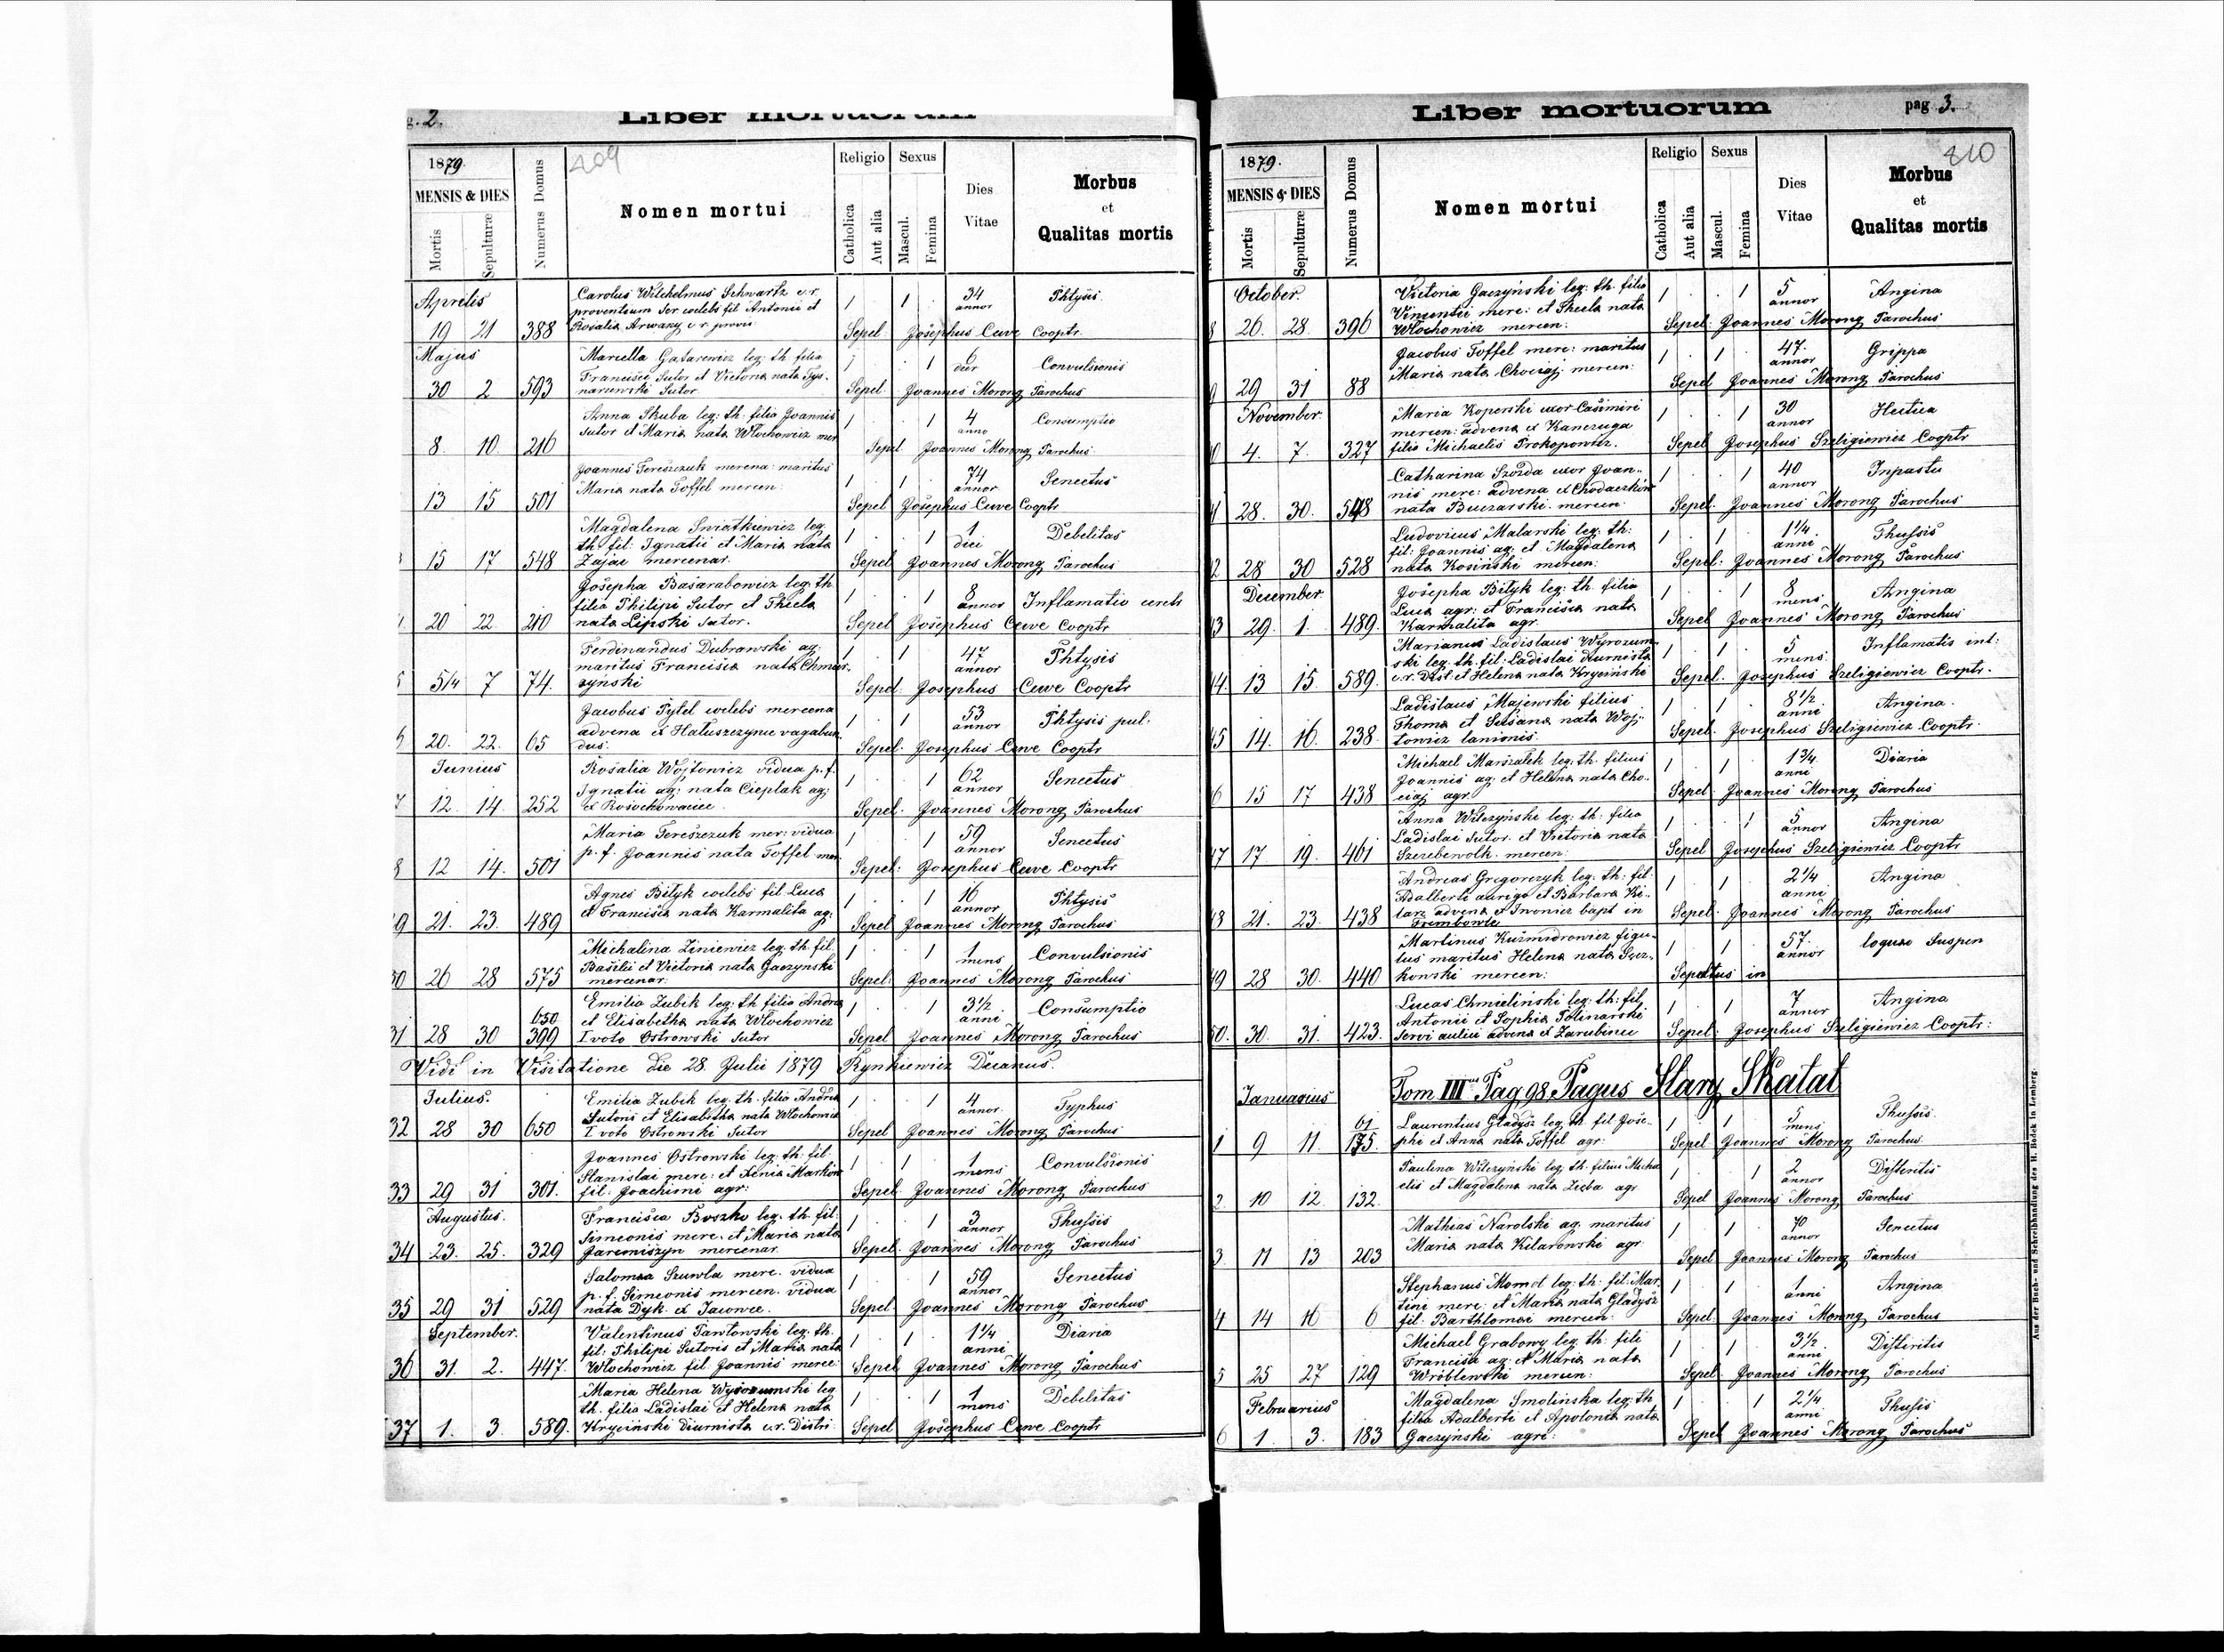 g. 2.
Liber mortuorum
1879.
409
MENSIS & DIES
Mortis
Sepulturæ
Numerus Domus
Nomen mortui
Religio
Catholica
Aut alia
Sexus
Mascul.
Femina
Dies
Vitae
Morbus
et
Qualitas mortis
Aprilis
19 21 388
Carolus Wilchelmus Schwartz c. r.
proventuum Ser coelebs fil Antonii et
Rosalia
1 1 34 annor Phtysis
Sepel Josephus Cuve Cooptr
Majus
30 2 593
Mariella Gatarewicz leg: th. filia
Francisci Sutor et Victoria nata Tys-
narowski Sutor
1 1 6 dier Convulsionis
Sepel Joannes Morong Parochus
8 10 216
Anna Skuba leg: th. filia Joannis
Sutor et Maria nata Włochowicz mer
1 1 4 anno Consumptio
Sepel Joannes Morong Parochus
13 15 501
Joannes Tereszczuk mercena: maritus
Maria nata Toffel mercen:
1 1 74 annor Senectus
Sepel Josephus Cuve Cooptr
15 17 548
Magdalena Swiatkiewicz leg
th. fil: Ignatii et Maria nata
Zająć mercenar.
1 1 1 diei Debelitas
Sepel Joannes Morong Parochus
20 22 210
Josepha Basarabowicz leg: th
filia Philipi Sutor et Thecla
nata Lipski Sutor.
1 1 8 annor Inflamatio cereb
Sepel Josephus Cuve Cooptr
5/4 7 74.
Ferdinandus Dubrawski ag:
maritus Francisca nata Chmar-
zyński
1 1 47 annor Phtysis
Sepel Josephus Cuve Cooptr
20. 22. 65
Jacobus Pytel coelebs mercena
advena ex Hałuszczyńce vagabun
dus.
1 1 53 annor Phtysis pul.
Sepel Josephus Cuve Cooptr
Junius
12. 14. 252
Rosalia Wojtowicz vidua p. f.
Ignatii ag: nata Cieplak ag:
ex Rosochowaciec
1 1 62 annor Senectus
Sepel Joannes Morong Parochus
12 14. 501
Maria Tereszczuk mer: vidua
p. f. Joannis nata Toffel mer
1 1 59 annor Senectus
Sepel: Josephus Cuve Cooptr
9 21. 23. 489
Agnes Bityk coelebs fil. Luca
et Francisca nata Karmalita ag:
1 1 16 annor Phtysis
Sepel Joannes Morong Parochus
30 26 28 575
Michalina Ziniewicz leg. th. fil.
Basilii et Victoria nata Gaczynski
mercenar:
1 1 1 mens Convulsionis
Sepel: Joannes Morong Parochus
31 28 30 650 399
Emilia Zubik leg: th filia Andrea
et Elisabetha nata Włochowicz
I voto Ostrowski Sutor
1 1 3½ anni Consumptio
Sepel Joannes Morong Parochus
Vidi in Visitatione die 28. Julii 1879 Rynkiewicz Decanus.
Julius.
32 28 30 650
Emilia Zubik leg. th. filia Andrea
Sutoris et Elisabetha nata Włochowicz
I voto Ostrowski Sutor
1 1 4 annor Typhus
Sepel Joannes Morong Parochus
33 29 31 301.
Joannes Ostrowski leg: th: fil:
Stanislai merc: et Xenia Markow
fil: Joachimi agr:
1 1 1 mens Convulsionis
Sepel Joannes Morong Parochus
Augustus.
34 23. 25. 329
Francisca Boszko leg: th. fil:
Simeonis merc. et Maria nata
Jaremiszyn mercenar
1 1 3 annor Thussis
Sepel Joannes Morong Parochus
35 29 31. 529
Salomea Szuwla merc. vidua
p. f. Simeonis mercen. vidua
nata Dyk. ex Iwowce.
1 1 59 annor Senectus
Sepel Joannes Morong Parochus
September.
36 31. 2. 447.
Valentinus Pawłowski leg: th.
fil: Philipi Sutoris et Maria nata
Włochowicz fil Joannis merce:
1 1 1¼ anni Diaria
Sepel Joannes Morong Parochus
37 1. 3. 589.
Maria Helena Wyrozumski leg
th. filia Ladislai et Helena nata
Kryciński Diurnista c. r. Distri:
1 1 1 mens Debelitas
Sepel Josephus Cuve Cooptr
Liber mortuorum
pag 3.
1879.
410
MENSIS & DIES
Mortis
Sepulturæ
Numerus Domus
Nomen mortui
Religio
Catholica
Aut alia
Sexus
Mascul.
Femina
Dies
Vitae
Morbus
et
Qualitas mortis
October.
8 26. 28. 396
Victoria Gaczyński leg: th. filia
Vincentii merc: et Thecla nata
Włochowicz mercen:
1 1 5 annor Angina
Sepel: Joannes Morong Parochus
9 29 31 88
Jacobus Toffel merc: maritus
Maria nata Chociaj mercen:
1 1 47. annor Grippa
Sepel Joannes Morong Parochus
November.
0 4. 7. 327
Maria Koperski uxor Casimiri
mercen: advena ex Kanczuga
filia Michaelis Prokopowicz.
1 1 30 annor Hectica
Sepel Josephus Szeligiewicz Cooptr
41 28. 30. 548
Catharina Szozda uxor Joan-
nis merc: advena ex Chodaczków
nata Buczarski mercen
1 1 40 annor Inpartu
Sepel: Joannes Morong Parochus
42 28 30 528
Ludovicus Malarski leg: th:
fil: Joannis ag. et Magdalena
nata Kosiński mercen:
1 1 1¼ anni Thussis
Sepel: Joannes Morong Parochus
December.
43 29. 1. 489.
Josepha Bityk leg: th. filia
Luca agr: et Francisca nata
Karmalita agr.
1 1 8 mens Angina
Sepel Joannes Morong Parochus
44. 13 15. 589.
Marianus Ladislaus Wyrozum
ski leg. th. fil: Ladislai diurnista
c. r. Dist. et Helena nata Kryciński
1 1 5 mens Inflamatis int:
Sepel. Josephus Szeligiewicz Cooptr.
45 14. 16. 238.
Ladislaus Majewski filius
Thoma et Susana nata Woj-
towicz lanionis
1 1 8½ anni Angina.
Sepel. Josephus Szeligiewicz Cooptr.
6 15 17 438
Michael Marszałek leg: th. filius
Joannis ag: et Helena nata Cho-
ciaj agr.
1 1 1¾ anni Diaria
Sepel Joannes Morong Parochus
47 17 19. 461
Anna Wilczyński leg: th: filia
Ladislai Sutor. et Victoria nata
mercen:
1 1 5 annor Angina
Sepel Josephus Szeligiewicz Cooptr
48 21. 23. 438
Andreas Gregorczyk leg: th: fil:
Adalberti auriga et Barbara Ki-
larz advena ex Iwonicz bapt in
Trembowla
1 1 2¼ anni Angina
Sepel: Joannes Morong Parochus
49 28 30. 440
Martinus Kuźmidrowicz figu-
lus maritus Helena nata
kowski mercen:
1 1 57. annor loqueo Suspen
Sepultus in
50. 30. 31. 423.
Lucas Chmieliński leg: th: fil,
Antonii et Sophia Polinarski
servi aulici advena ex Zarubince
1 1 7 annor Angina
Sepel: Josephus Szeligiewicz Cooptr:
Tom IIIus Pag 98. Pagus Stary Skałat
Januarius
1 9 11. 61 175.
Laurentius Gładysz leg: th: fil Jose-
phi et Anna nata Toffel agr:
1 1 5 mens Thussis.
Sepel Joannes Morong Parochus.
2. 10 12 132.
Paulina Wilczyński leg. th. filius Micha
elis et Magdalena nata Zięba agr
1 1 2 annor Difteritis
Sepel Joannes Morong Parochus
3 11 13 203
Mathias Narolski ag. maritus
Maria nata Kilarowski agr
1 1 70 annor Senectus
Sepel Joannes Morong Parochus
4 14 16 6
Stephanus Momot leg: th: fil: Mar
tini merc: et Maria nata Gładysz
fil: Barthlomei mercen:
1 1 1 anni Angina
Sepel Joannes Morong Parochus
5 25 27 129
Michael Grabowy leg. th: fili
Francisci ag: et Maria nata
Wróblewski mercen:
1 1 3½ anni Difteritis
Sepel Joannes Morong Parochus
Februarius
6 1 3. 183
Magdalena Smolińska leg: th
filia Adalberti et Apolonia nata
Gaczyński agri:
1 1 2¼ anni Thussis
Sepel Joannes Morong Parochus
Aus der Buch- und Schreibhandlung des H. Bodek in Lemberg.